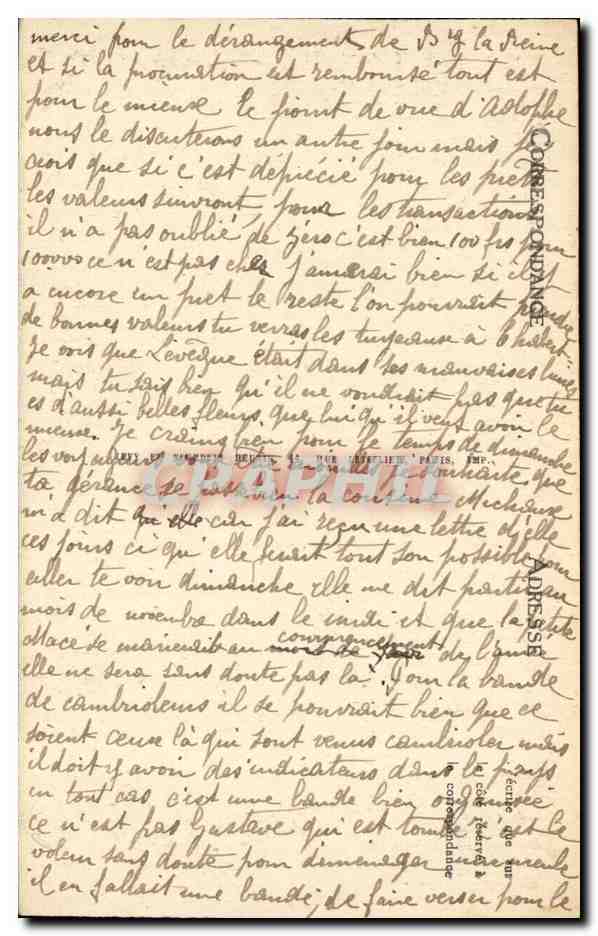 merci pour le dérangement de Bg la Reine
et si la procuration est remboursé tout est
pour le mieux Le point de vue d'Adolphe
nous le discuterons un autre jour mais je
crois que si c'est déprécié pour les prêts
les valeurs suivront pour les transactions
il n'a pas oublié de zéro c'est bien 100 frs pour
100000 ce n'est pas cher j'aimerai bien si il y
a encore un pret le reste l'on pourrait prendre
de bonnes valeurs tu verras les tuyeaux à
Je vois que Levêque était dans ses mauvaises lunes
mais tu sais bien qu'il ne voudrait pas que tu
es d'aussi belles fleurs que lui qu'il veut avoir le
mieux. Je crains bien pour le temps de dimanche
les voyageurs je souhaite que
ta gérance se passe bien la cousine Michaux
m'a dit qu'elle car j'ai reçu une lettre d'elle
ces jours ci qu'elle ferait tout son possible pour
aller te voir dimanche elle me dit partir au
mois de novembre dans le midi et que la petite
Macé se marierait au commencement de l'année
elle ne sera sans doute pas là. Pour la bande
de cambrioleurs il se pourrait bien que ce
soient ceux là qui sont venus cambrioler mais
il doit y avoir des indicateurs dans le pays
en tout cas c'est une bande bien organisée
ce n'est pas Gustave qui est tombé c'est le
voleur sans doute pour déménager
il en fallait une bande, de faire verser pour le
CORRESPONDANCE
ADRESSE
LEVY ET NEURDEIN RÉUNIS, 44, RUE LETELLIER, PARIS, IMP.
CRAPHIL
écrire que sur
le côté réservé à
la correspondance